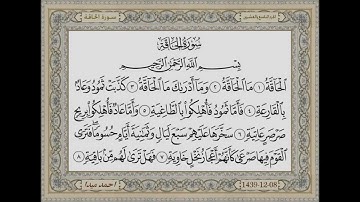 سورة الحاقة
الجزء التاسع والعشرين
سُورَةُ الحَاقَّةِ
بِسْمِ اللَّهِ الرَّحْمَٰنِ الرَّحِيمِ
الْحَاقَّةُ ١ مَا الْحَاقَّةُ ٢ وَمَا أَدْرَاكَ مَا الْحَاقَّةُ ٣ كَذَّبَتْ ثَمُودُ وَعَادٌ
بِالْقَارِعَةِ ٤ فَأَمَّا ثَمُودُ فَأُهْلِكُوا بِالطَّاغِيَةِ ٥ وَأَمَّا عَادٌ فَأُهْلِكُوا بِرِيحٍ
صَرْصَرٍ عَاتِيَةٍ ٦ سَخَّرَهَا عَلَيْهِمْ سَبْعَ لَيَالٍ وَثَمَٰنِيَةَ أَيَّامٍ حُسُومًا ۖ فَتَرَى
الْقَوْمَ فِيهَا صَرْعَىٰ كَأَنَّهُمْ أَعْجَازُ نَخْلٍ خَاوِيَةٍ ٧ فَهَلْ تَرَىٰ لَهُم مِّنۢ بَاقِيَةٍ ٨
1439-12-08